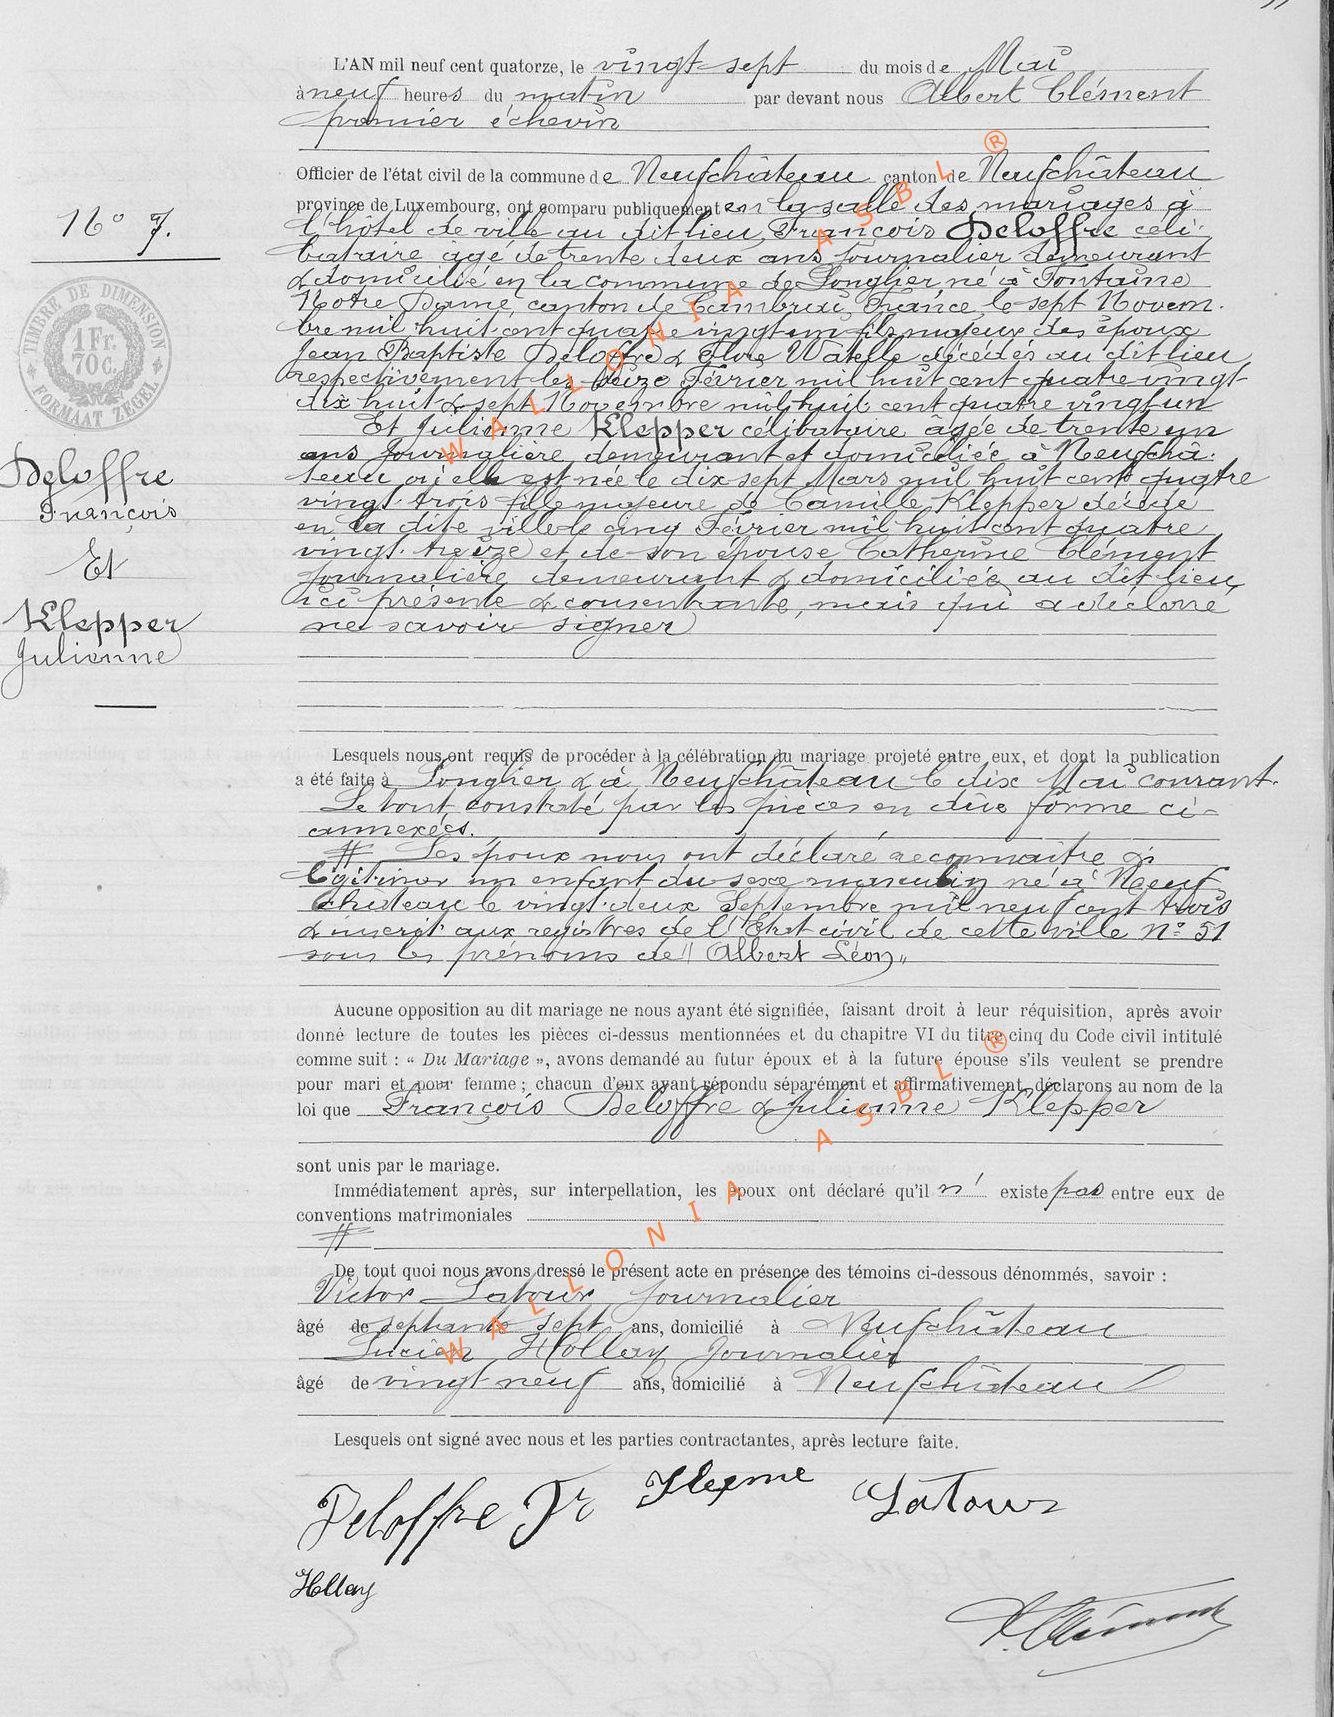 L'AN mil neuf cent quatorze, le vingt-sept du mois de Mai
à neuf heures du matin par devant nous Albert Clément
premier échevin
Officier de l'état civil de la commune de Neufchâteau canton de Neufchâteau
province de Luxembourg, ont comparu publiquement en la salle des mariages à
l'hôtel de ville au dit lieu, François Deloffre céli-
bataire âgé de trente deux ans journalier demeurant
& domicilié en la commune de Longlier né à Fontaine
Notre Dame, canton de Cambrai, France, le sept Novem-
bre mil huit cent quatre vingt un fils majeur des époux
Jean Baptiste Deloffre & Flore Watelle décédés au dit lieu
respectivement les Février mil huit cent quatre vingt
dix huit & sept Novembre mil huit cent quatre vingt un
Et Julienne Klepper célibataire âgée de trente un
ans Journalière, demeurant et domiciliée à Neufchâ-
teau où elle est née le dix sept Mars mil huit cent quatre
vingt-trois fille majeure de Camille Klepper décédé
en la dite ville le cinq Février mil huit cent quatre
vingt-treize et de son épouse Catherine Clément
journalière, demeurant & domiciliée au dit lieu,
ici présente & consentante, mais qui a déclaré
ne savoir signer
No 7.
TIMBRE DE DIMENSION
1 Fr.
70 c.
FORMAAT ZEGEL
Deloffre
François
Et
Klepper
Julienne
Lesquels nous ont requis de procéder à la célébration du mariage projeté entre eux, et dont la publication
a été faite à Longlier & à Neufchâteau le dix Mai courant.
Le tout constaté par les pièces en due forme ci-
annexées.
# Les époux nous ont déclaré reconnaître &
légitimer un enfant du sexe masculin né à Neuf-
château le vingt-deux Septembre mil neuf cent trois
& inscrit aux registres de l'Etat civil de cette ville No 51
sous les prénoms de " Albert Léon "
Aucune opposition au dit mariage ne nous ayant été signifiée, faisant droit à leur réquisition, après avoir
donné lecture de toutes les pièces ci-dessus mentionnées et du chapitre VI du titre cinq du Code civil intitulé
comme suit : « Du Mariage », avons demandé au futur époux et à la future épouse s'ils veulent se prendre
pour mari et pour femme ; chacun d'eux ayant répondu séparément et affirmativement, déclarons au nom de la
loi que François Deloffre & Julienne Klepper
sont unis par le mariage.
Immédiatement après, sur interpellation, les époux ont déclaré qu'il n' existe pas entre eux de
conventions matrimoniales
#
De tout quoi nous avons dressé le présent acte en présence des témoins ci-dessous dénommés, savoir :
Victor Latour Journalier
âgé de septante sept ans, domicilié à Neufchâteau
Lucien Hollay Journalier
âgé de vingt neuf ans, domicilié à Neufchâteau
Lesquels ont signé avec nous et les parties contractantes, après lecture faite.
Deloffre Fr
Latour
Hollay
A. Clément
WALLONIA ASBL ®
WALLONIA ASBL ®